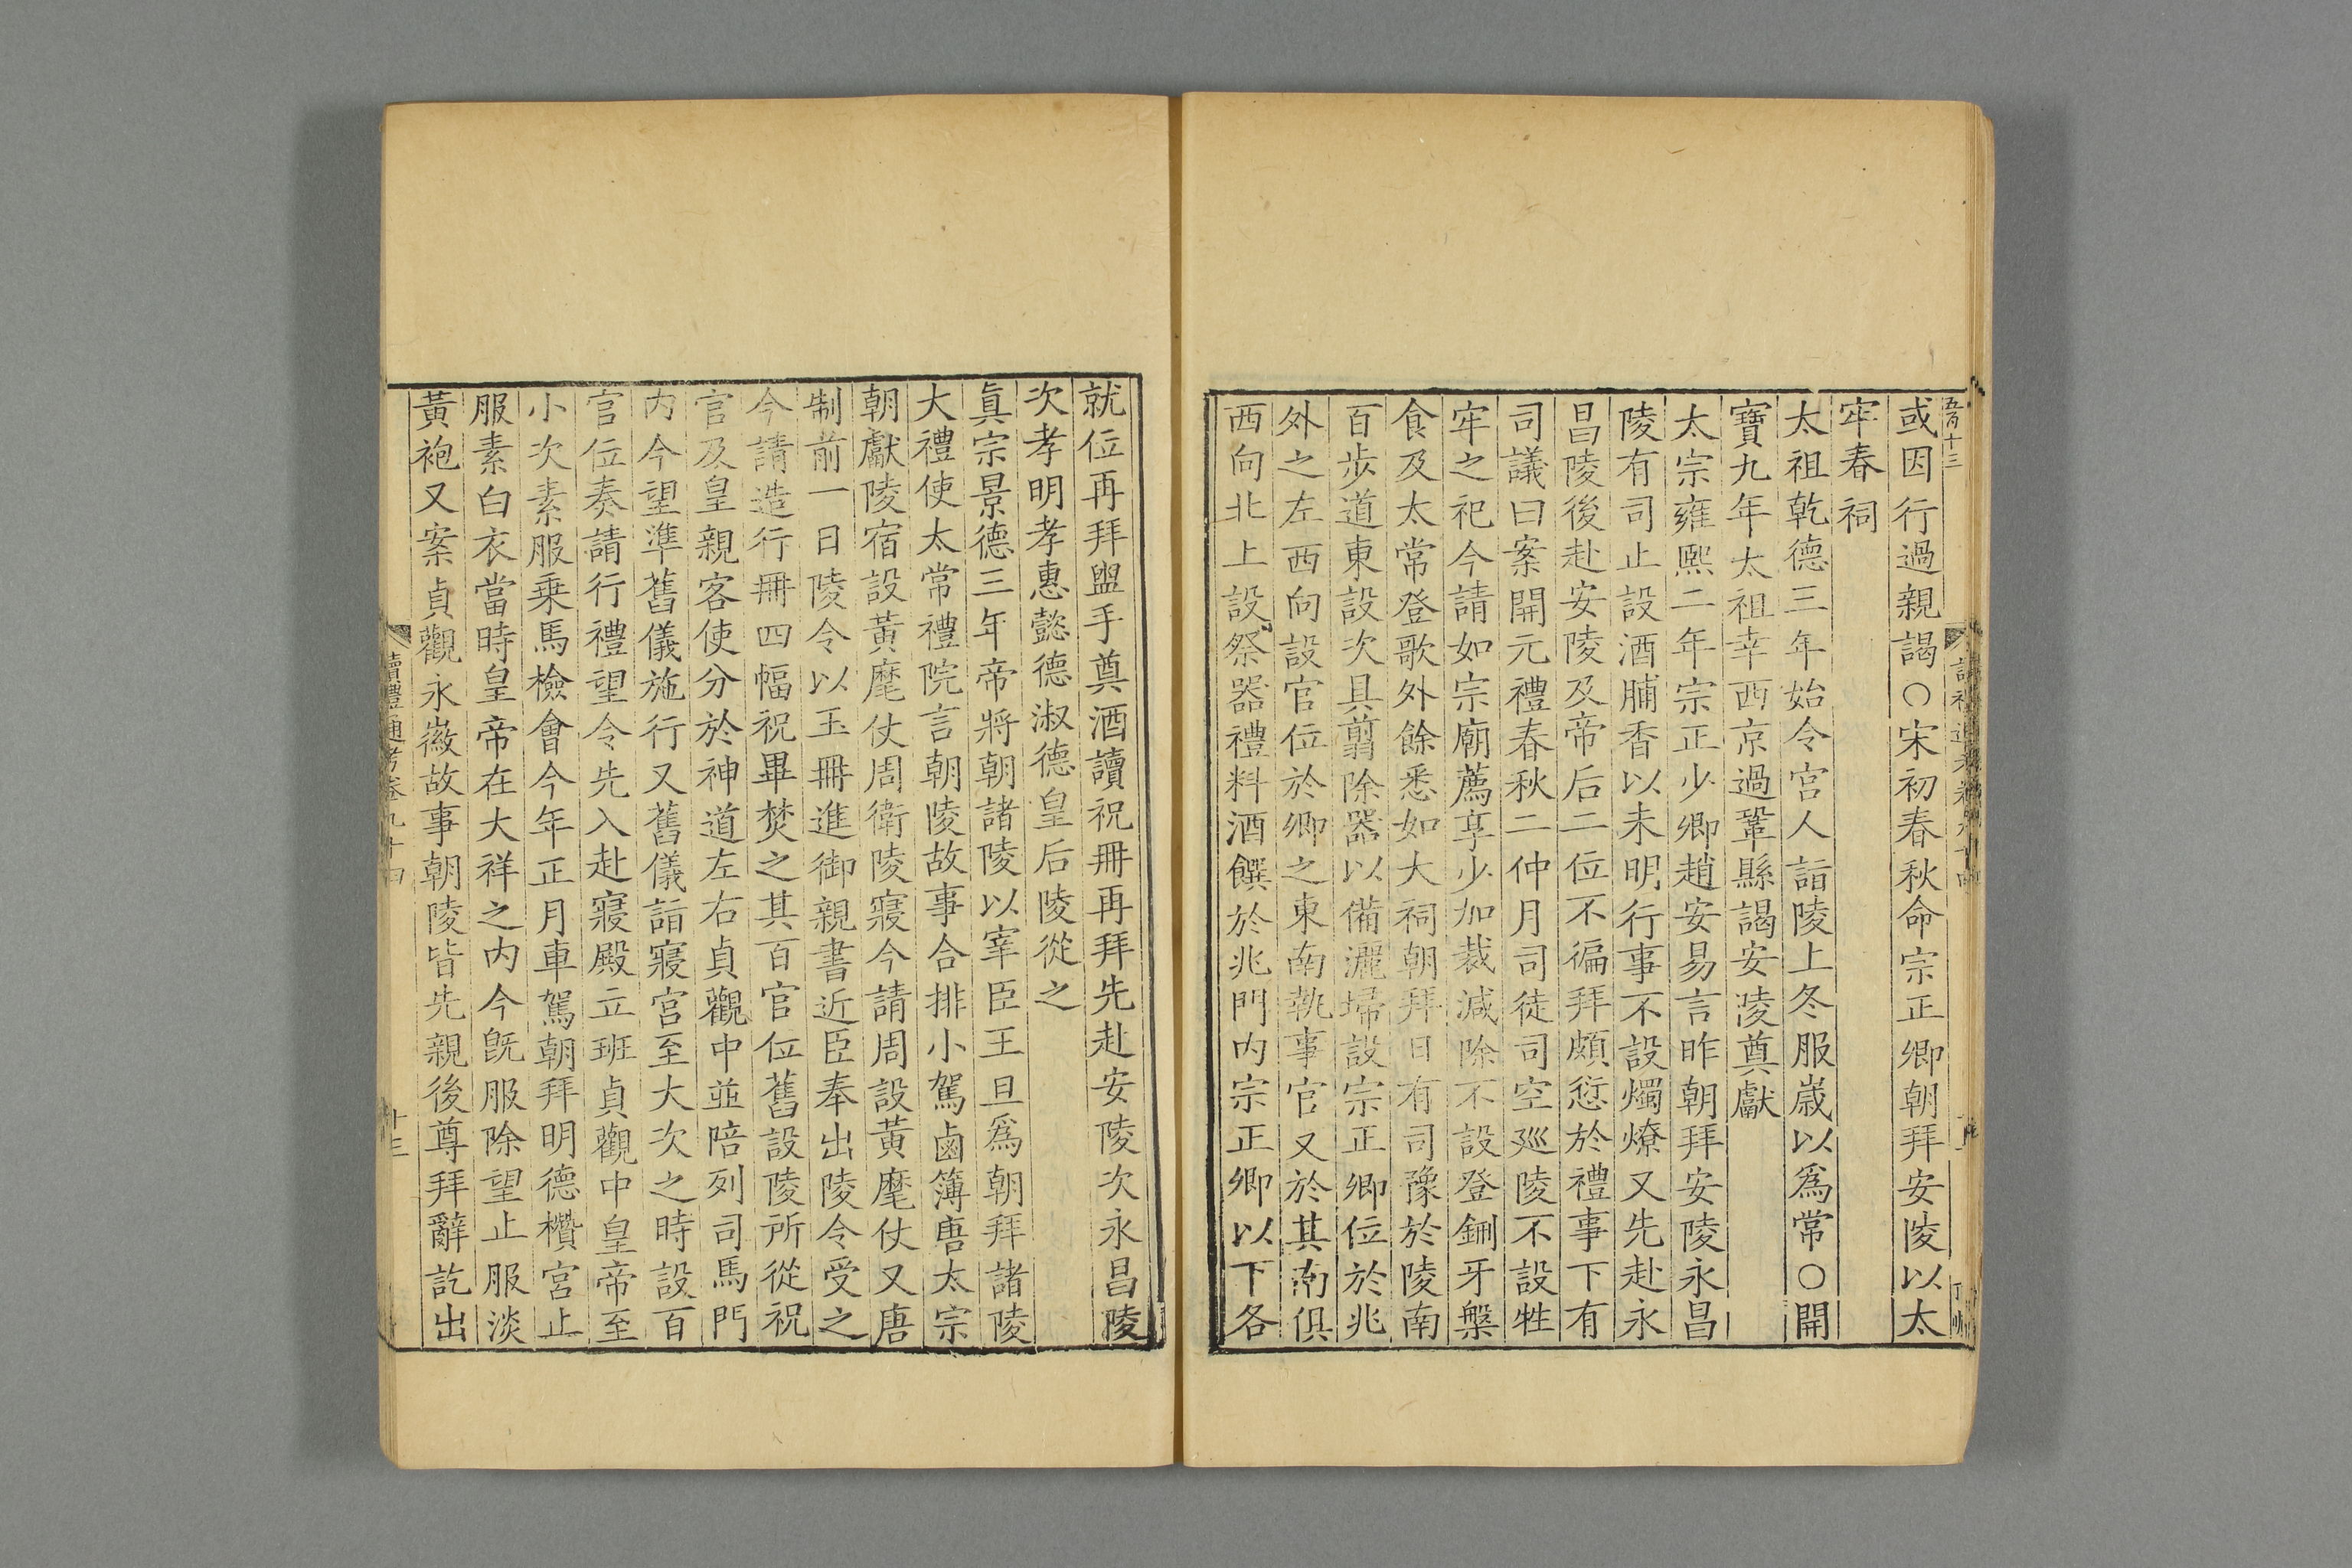 五百十三
或因行過親謁○宋初春秋命宗正卿朝拜安陵以太
牢春祠
太祖乾德三年始令宮人詣陵上冬服歳以爲常○開
寶九年太祖幸西京過鞏縣謁安陵奠獻
太宗雍熙二年宗正少卿趙安易言昨朝拜安陵永昌
陵有司止設酒脯香以未明行事不設燭燎又先赴永
昌陵後赴安陵及帝后二位不徧拜頗愆於禮事下有
司議曰案開元禮春秋二仲月司徒司空廵陵不設牲
牢之祀今請如宗廟薦享少加裁減除不設登鉶牙槃
食及太常登歌外餘悉如大祠朝拜日有司豫於陵南
百歩道東設次具翦除器以備灑埽設宗正卿位於兆
外之左西向設官位於卿之東南執事官又於其南俱
西向北上設祭器禮料酒饌於兆門内宗正卿以下各
就位再拜盥手奠酒讀祝冊再拜先赴安陵次永昌陵
次孝明孝惠懿德淑德皇后陵從之
眞宗景德三年帝將朝諸陵以宰臣王旦爲朝拜諸陵
大禮使太常禮院言朝陵故事合排小駕鹵簿唐太宗
朝獻陵宿設黃麾仗周衛陵寢今請周設黃麾仗又唐
制前一日陵令以玉冊進御親書近臣奉出陵令受之
今請造行冊四幅祝畢焚之其百官位舊設陵所從祝
官及皇親客使分於神道左右貞觀中並陪列司馬門
内今望準舊儀施行又舊儀詣寢宮至大次之時設百
官位奏請行禮望令先入赴寢殿立班貞觀中皇帝至
小次素服乗馬檢會今年正月車駕朝拜明德欑宮止
服素白衣當時皇帝在大祥之内今旣服除望止服淡
黃袍又案貞觀永徽故事朝陵皆先親後尊拜辭訖出
讀禮通考卷九十四
十三